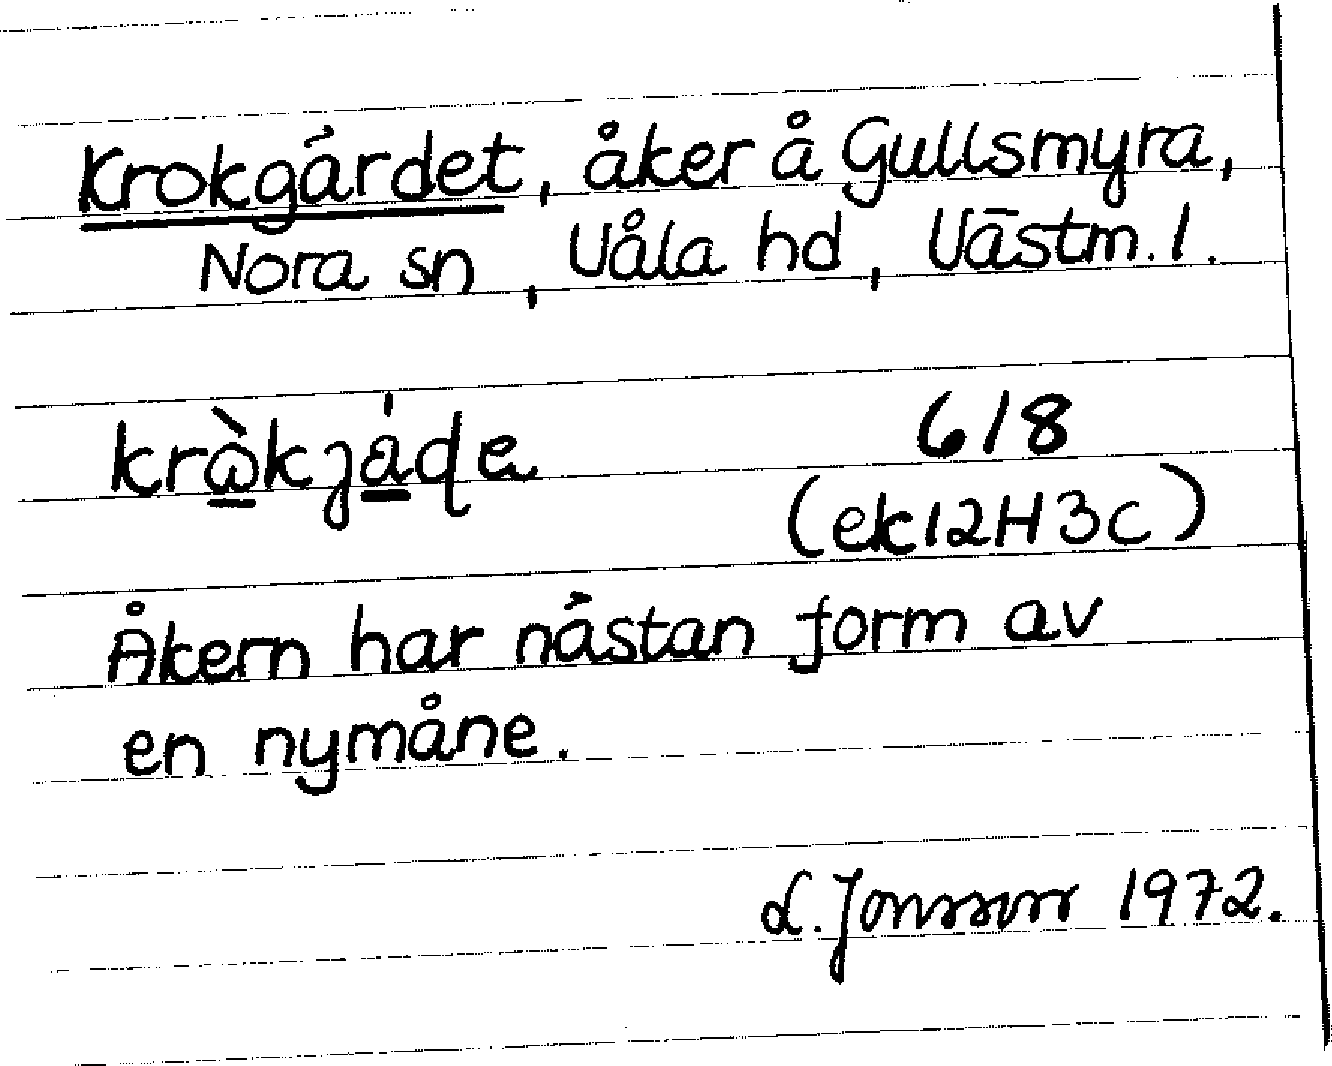 Krokgärdet, åker å Gullsmyra,
Nora sn, Våla hd, Västm. l.
kràkjáde
618
(ek12H3C)
Åkern har nästan form av
en nymåne.
L. Jonsson 1972.